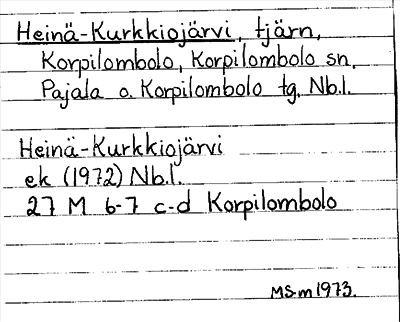 Heinä-Kurkkiojärvi, tjärn,
Korpilombolo, Korpilombolo sn,
Pajala o. Korpilombolo tg, Nb.l.
Heinä-Kurkkiojärvi
ek (1972) Nb.l.
27 M 6-7 c-d Korpilombolo
MSm 1973.